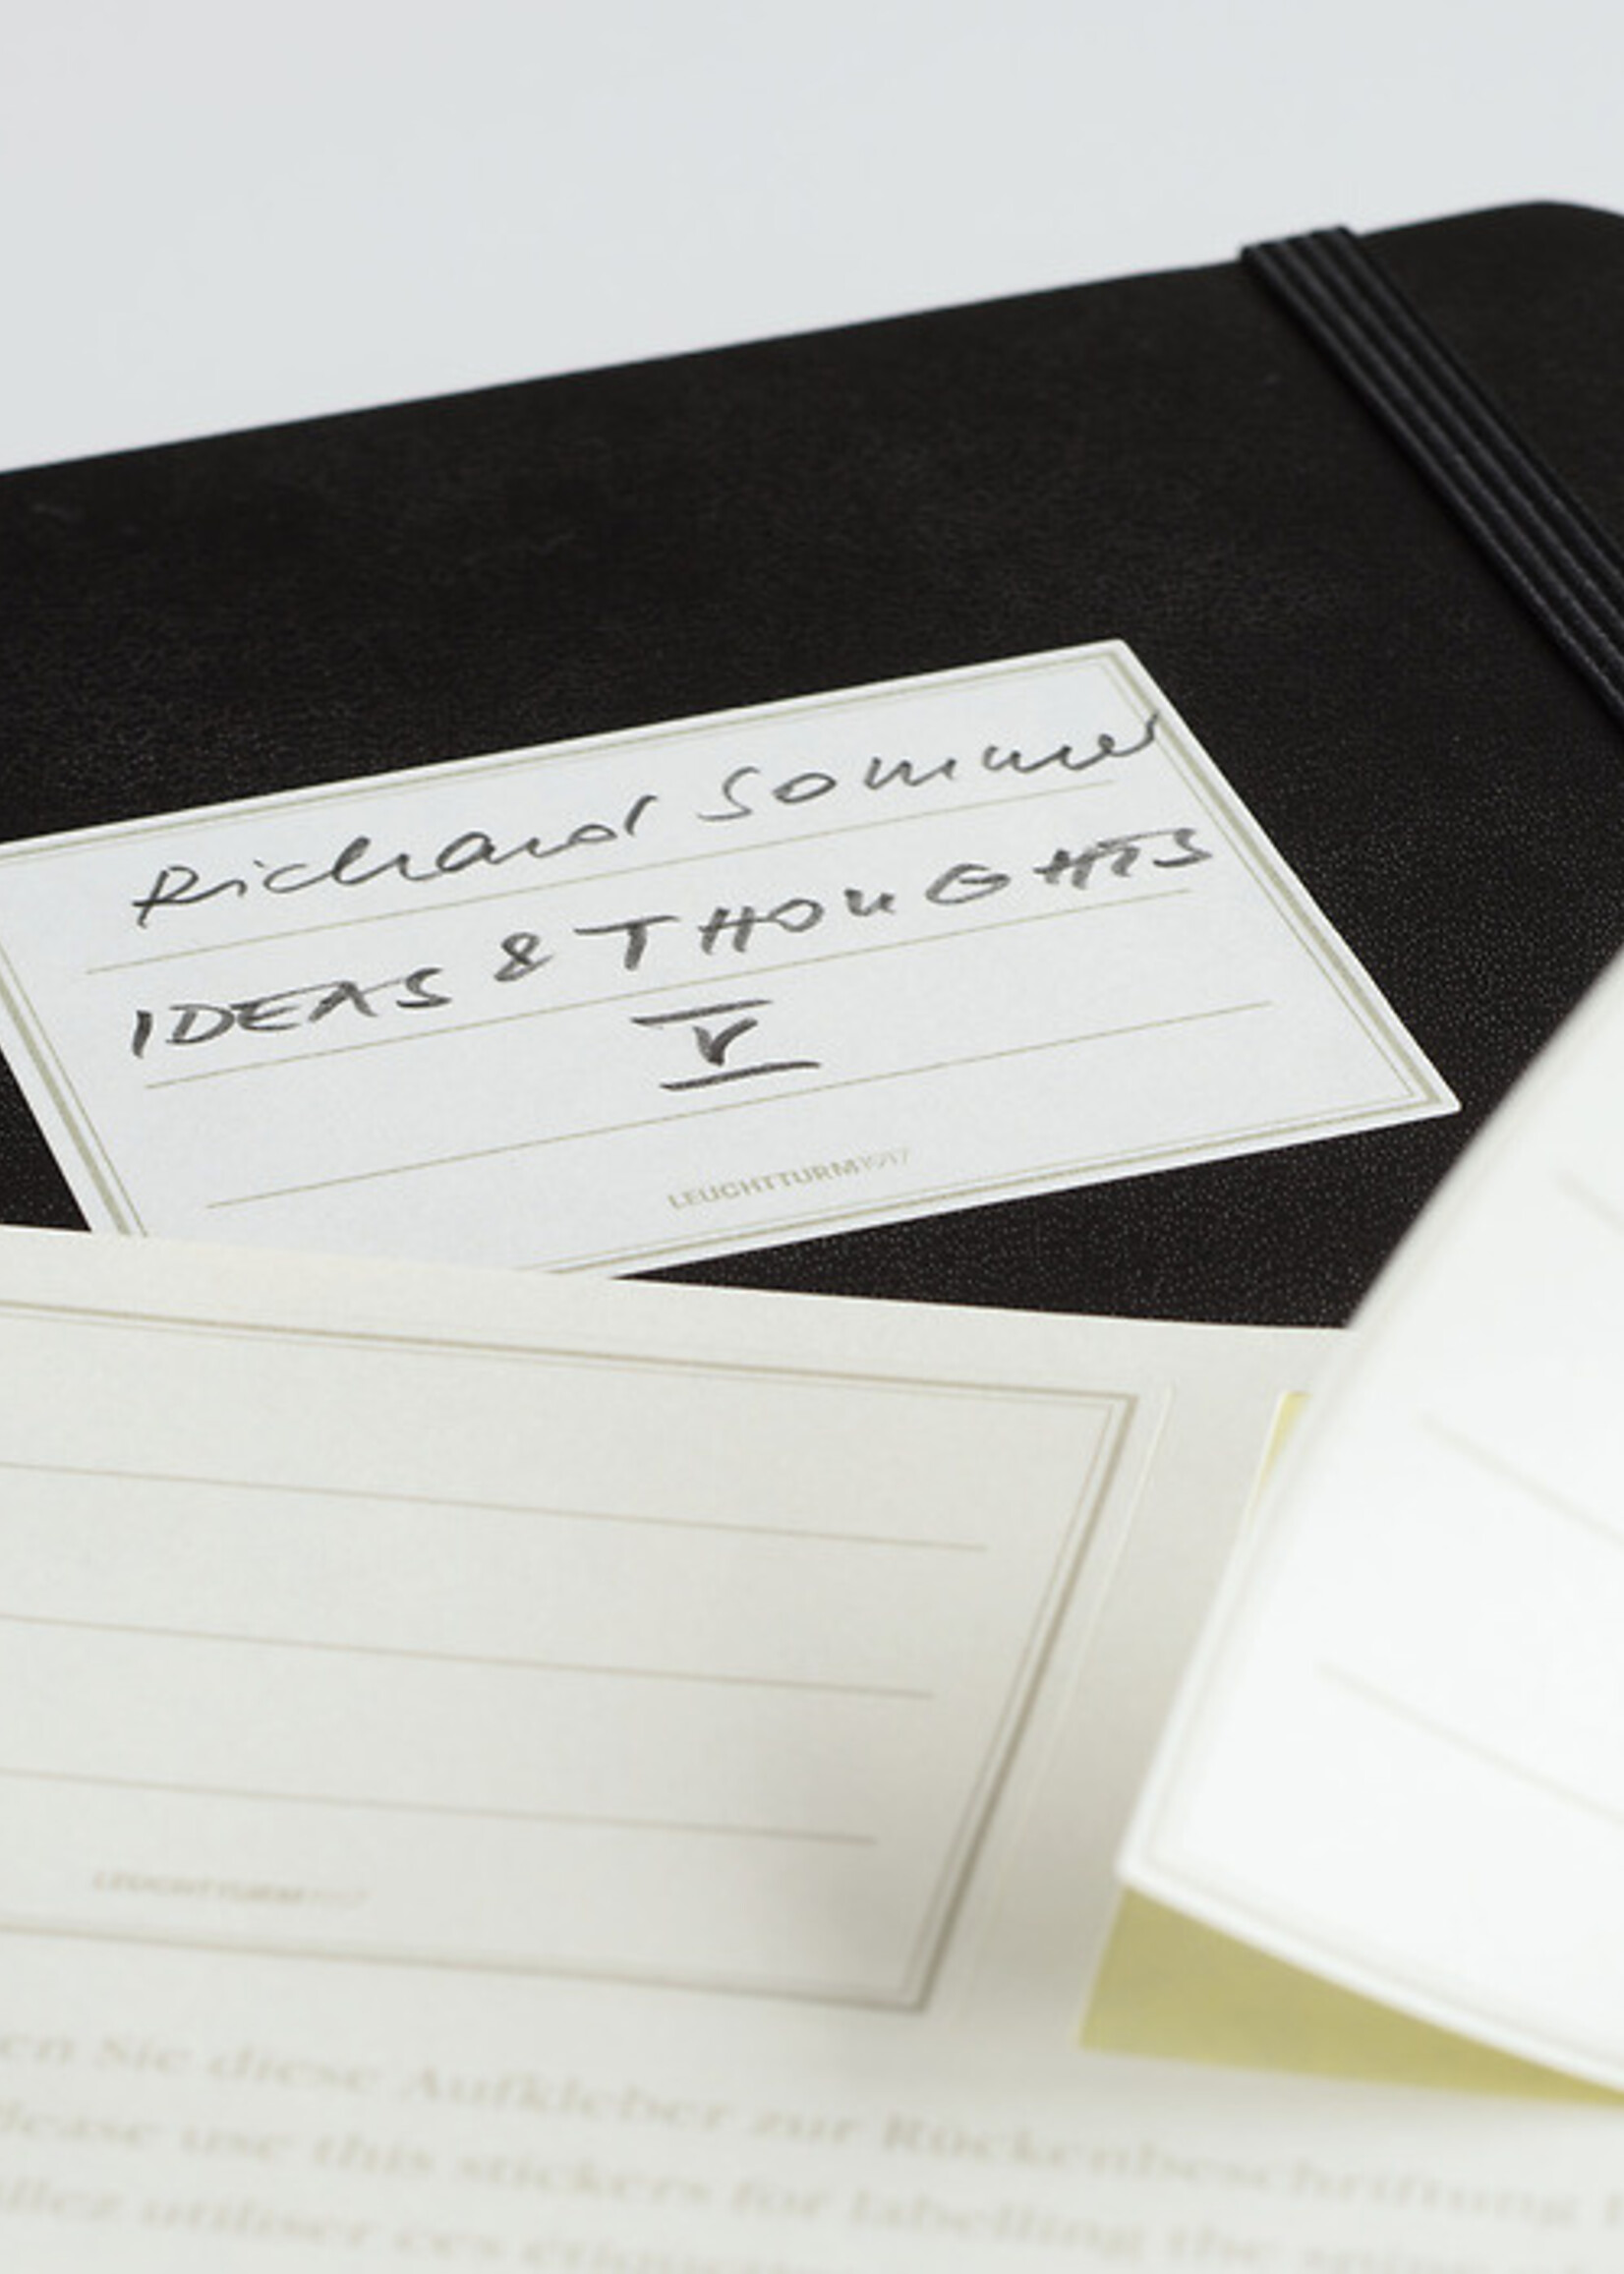 Richard Sommer
IDEAS & THOUGHTS
V
LEUCHTTURM1917
LEUCHTTURM1917
en Sie diese Aufkleber zur Rückenbeschriftung
lease use this stickers for labelling the
llez utiliser ces